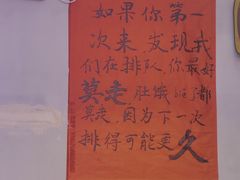 如果你第一
次来,发现我
们在排队,你最好
莫走,肚饿了都
莫走,因为下一次
排得可能更久